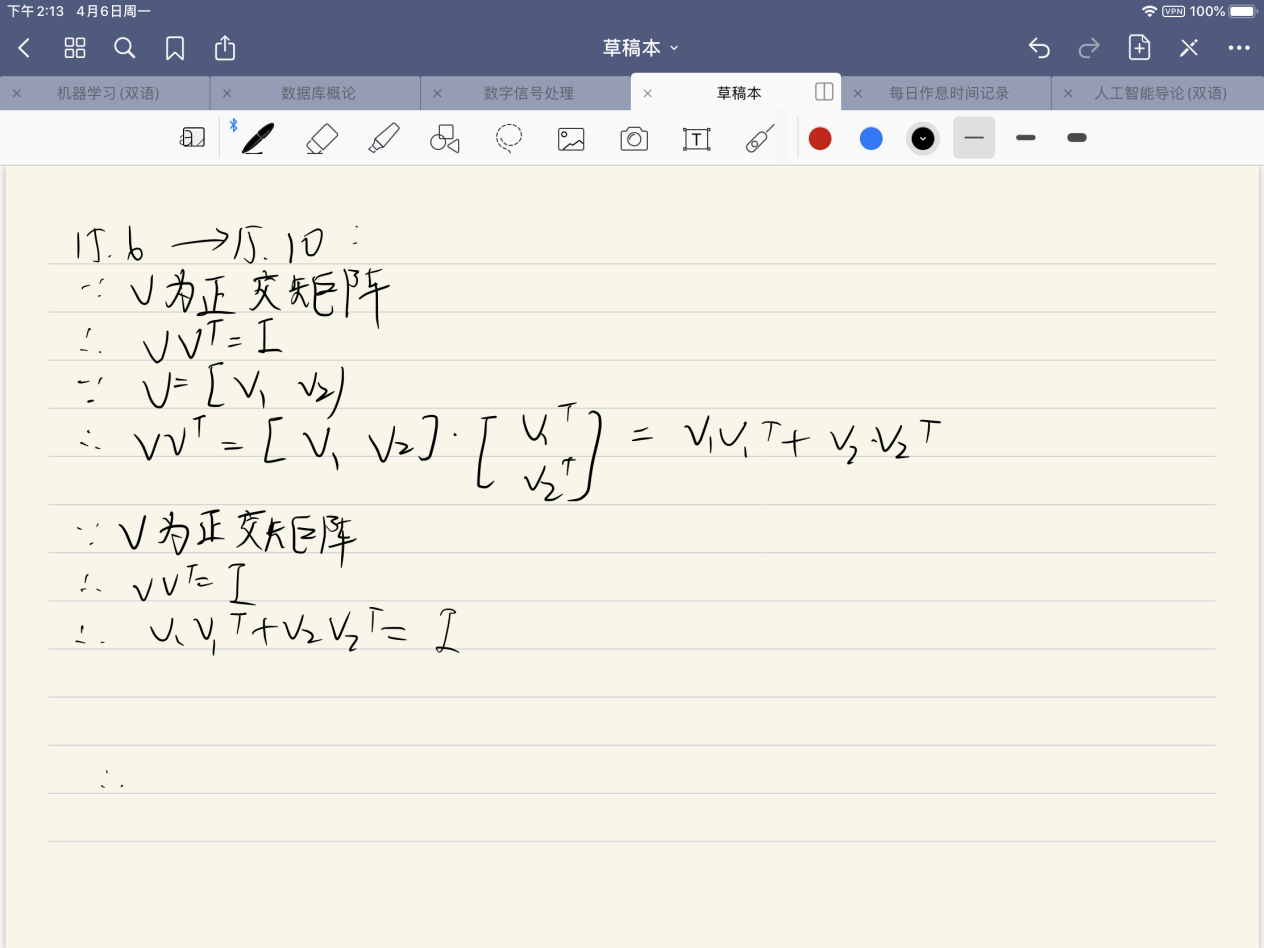 下午2:13 4月6日周一
VPN 100%
草稿本
机器学习(双语)
数据库概论
数字信号处理
草稿本
每日作息时间记录
人工智能导论(双语)
15.6 → 15.10 :
∵ V为正交矩阵
∴ VVᵀ = I
∵ V = [V₁ V₂]
∴ VVᵀ = [V₁ V₂] · [V₁ᵀ V₂ᵀ] = V₁V₁ᵀ + V₂·V₂ᵀ
∵ V为正交矩阵
∴ VVᵀ = I
∴ V₁V₁ᵀ + V₂V₂ᵀ = I
∴